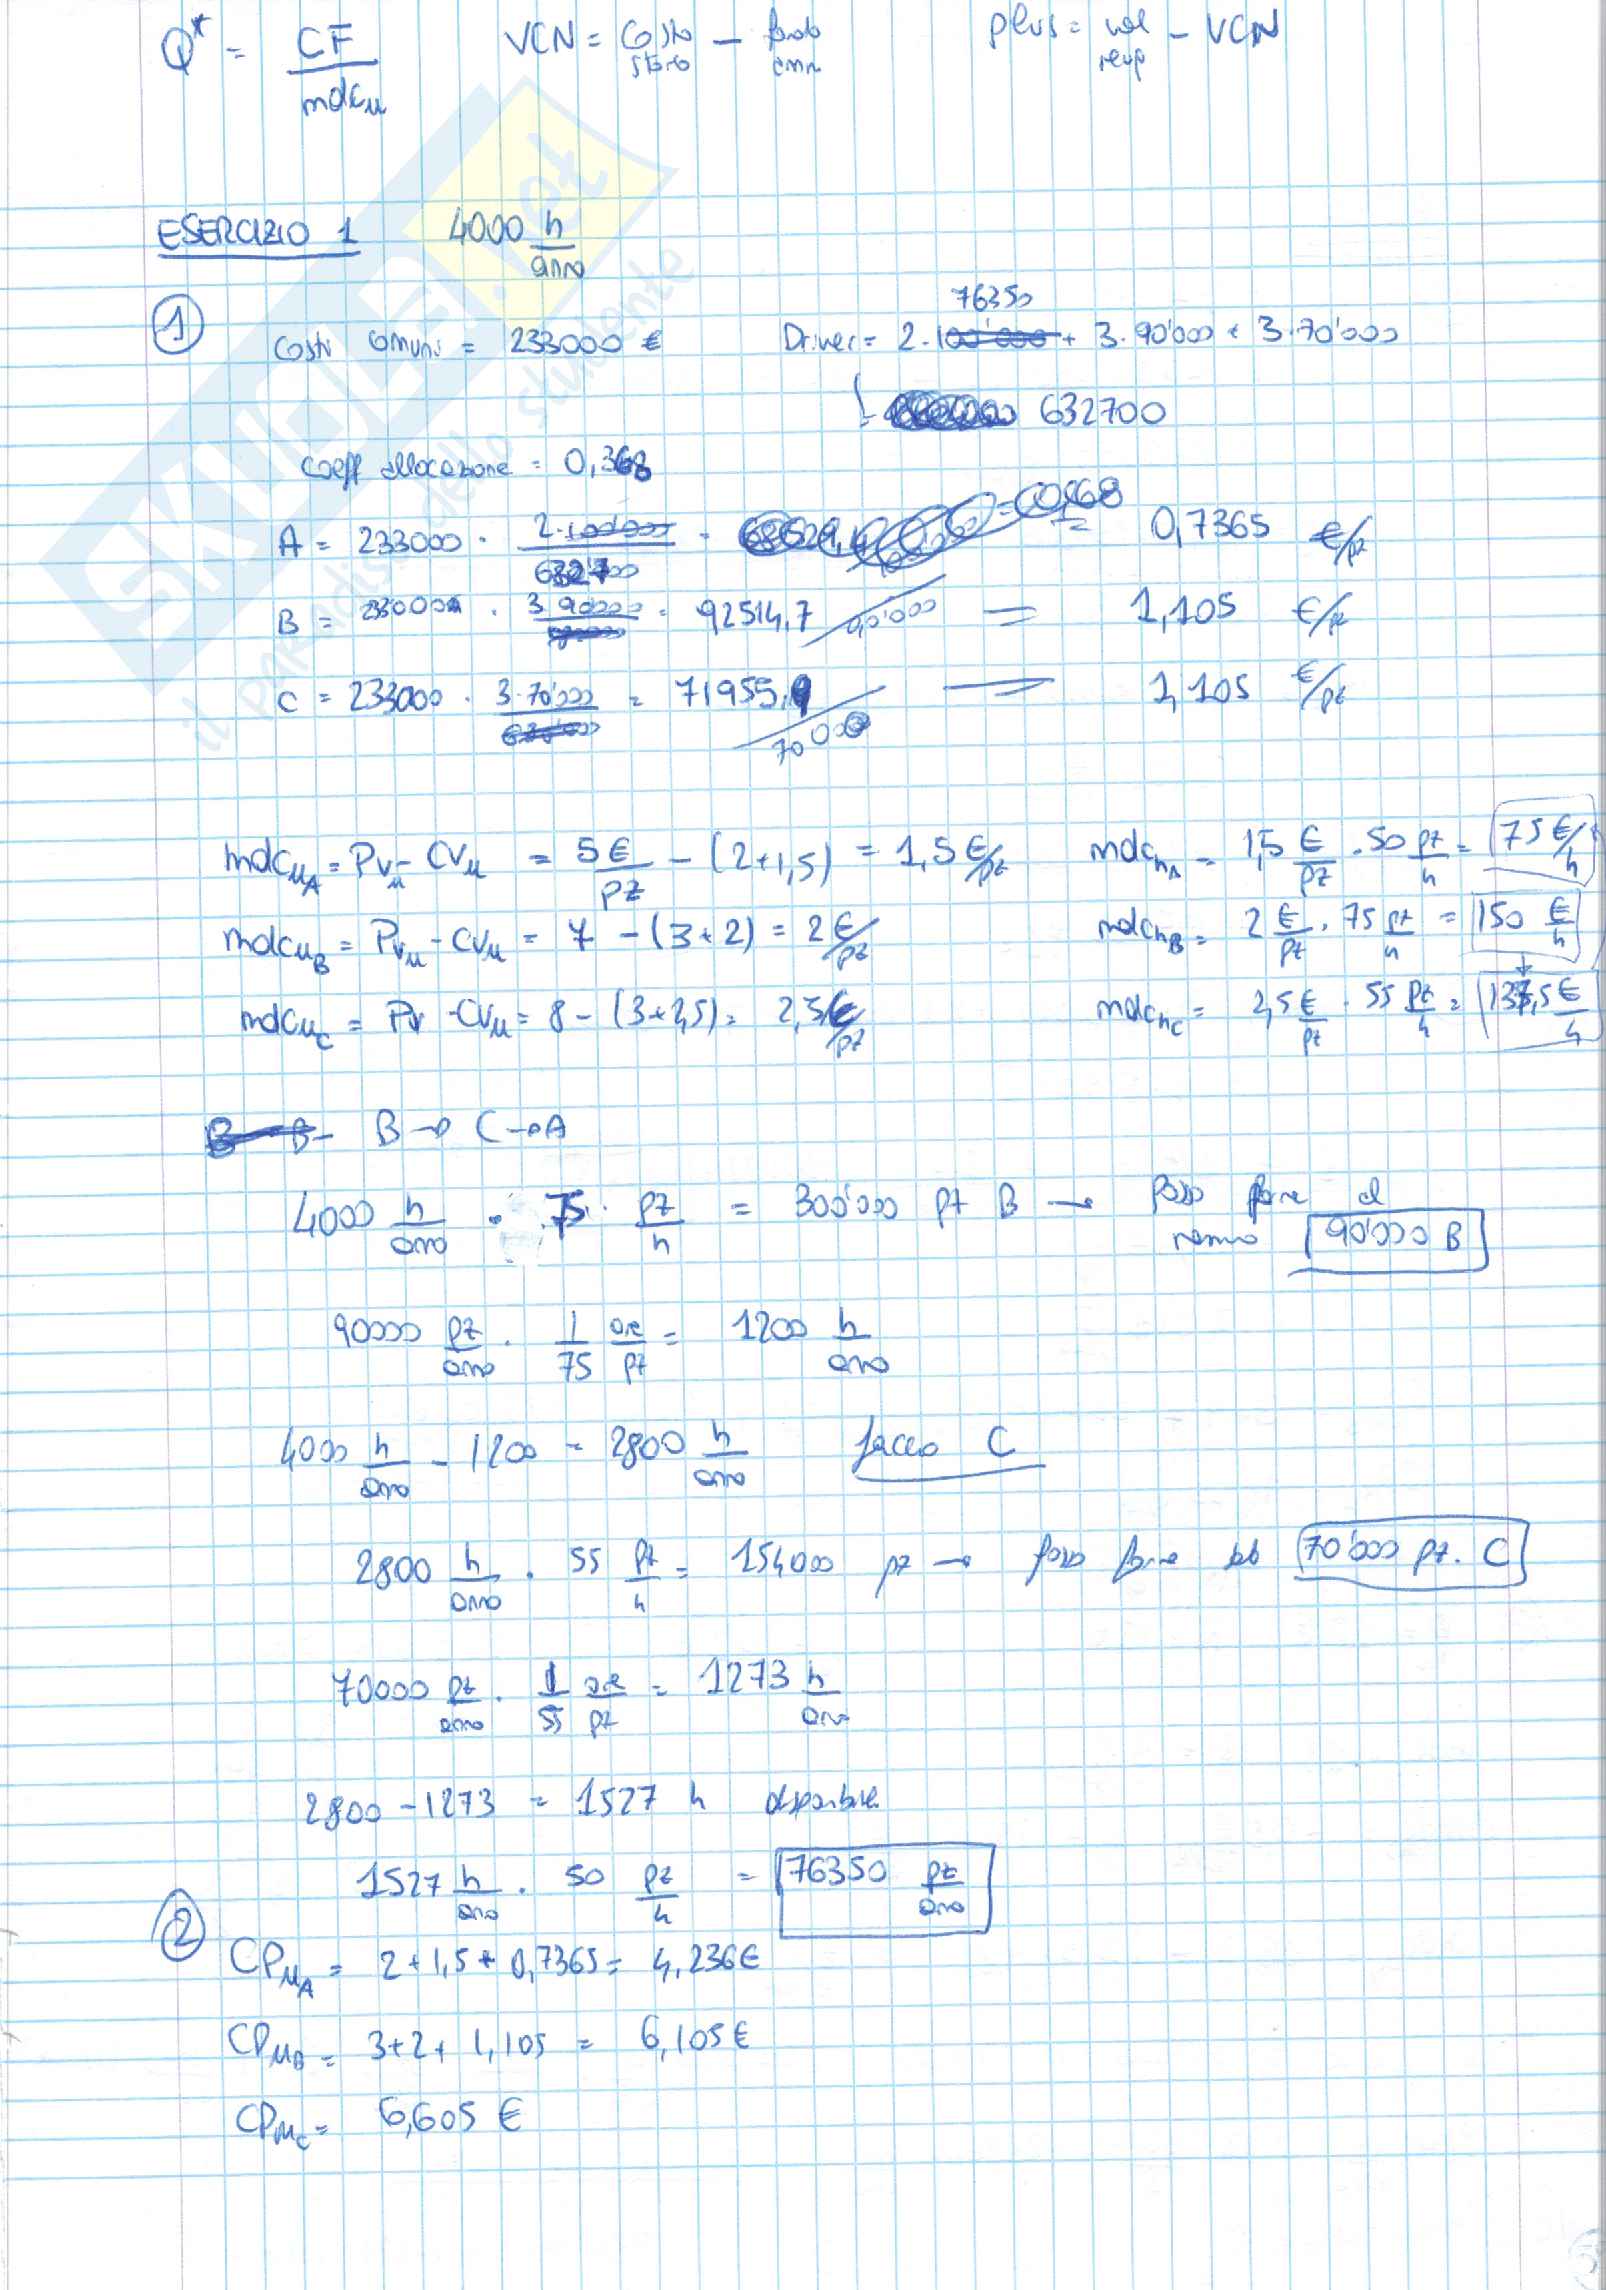 Q* = CF / mdcu    VCN = Costo storo - fondo amm    plus = val recup - VCN
ESERCIZIO 1    4000 h/anno
1
Costi comuni = 233000 €    Driver = 2·100'000 76350 + 3·90'000 + 3·70'000
632700
coeff allocazione = 0,368
A = 233000 · 2·100'000 / 632700 = 0,7365 €/pz
B = 233000 · 3·90000 = 92514,7 / 90'000 = 1,105 €/pz
C = 233000 · 3·70'000 = 71955,9 / 70000 = 1,105 €/pz
mdcuA = Pvu - CVu = 5 €/pz - (2+1,5) = 1,5 €/pz    mdchA = 1,5 €/pz · 50 pz/h = 75 €/h
mdcuB = Pvu - CVu = 7 - (3+2) = 2 €/pz    mdchB = 2 €/pz · 75 pz/h = 150 €/h
mdcuC = Pv - CVu = 8 - (3+2,5) = 2,5 €/pz    mdchC = 2,5 €/pz · 55 pz/h = 137,5 €/h
B → C → A
4000 h/anno · 75 pz/h = 300'000 pz B → posso farne al
90'000 B
90000 pz/anno · 1/75 ore/pz = 1200 h/anno
4000 h/anno - 1200 = 2800 h/anno    faccio C
2800 h/anno · 55 pz/h = 154000 pz → posso farne 70'000 pz. C
70000 pz/anno · 1/55 ore/pz = 1273 h/anno
2800 - 1273 = 1527 h disponibili
1527 h/anno · 50 pz/h = 76350 pz/anno
2
CPuA = 2 + 1,5 + 0,7365 = 4,236 €
CPuB = 3 + 2 + 1,105 = 6,105 €
CPuC = 6,605 €
SKUOLA.net
il paradiso dello studente